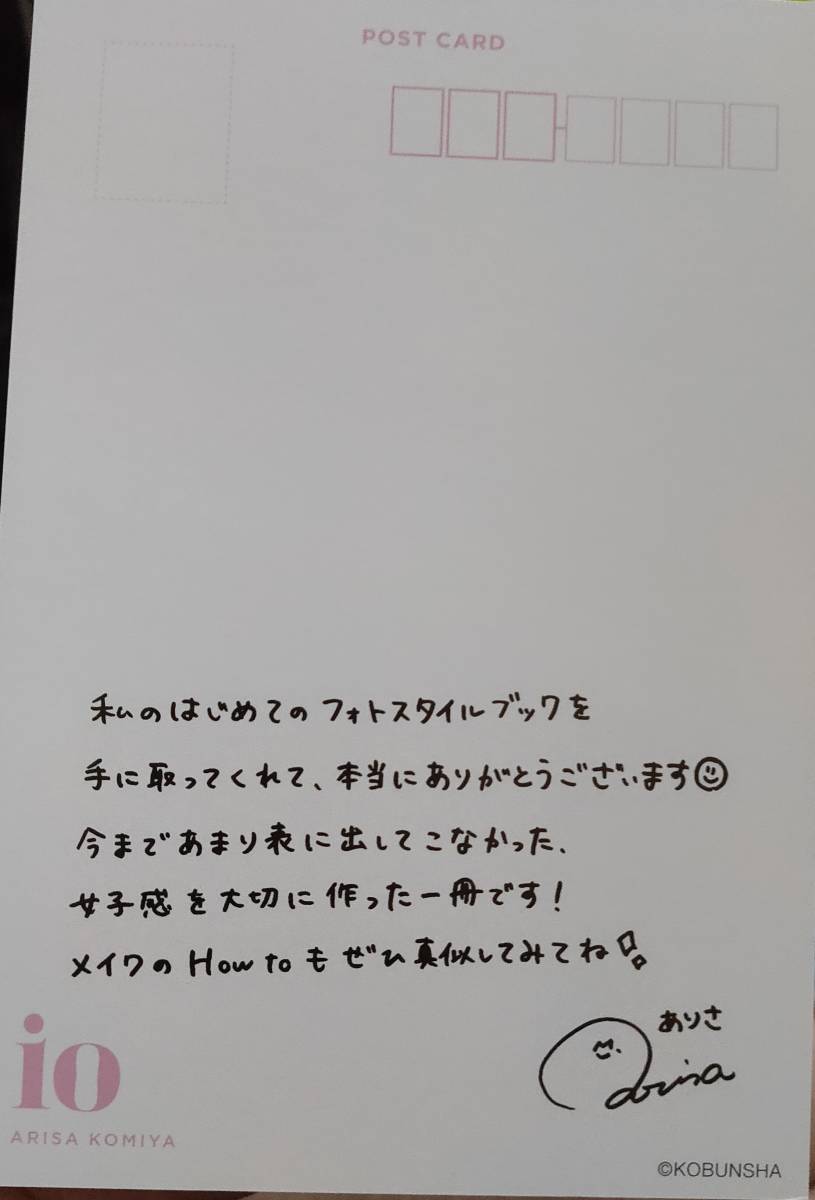 POST CARD
私のはじめてのフォトスタイルブックを
手に取ってくれて、本当にありがとうございます
今まであまり表に出してこなかった、
女子感を大切に作った一冊です!
メイクのHow toもぜひ真似してみてね
ありさ
Arisa
io
ARISA KOMIYA
©KOBUNSHA